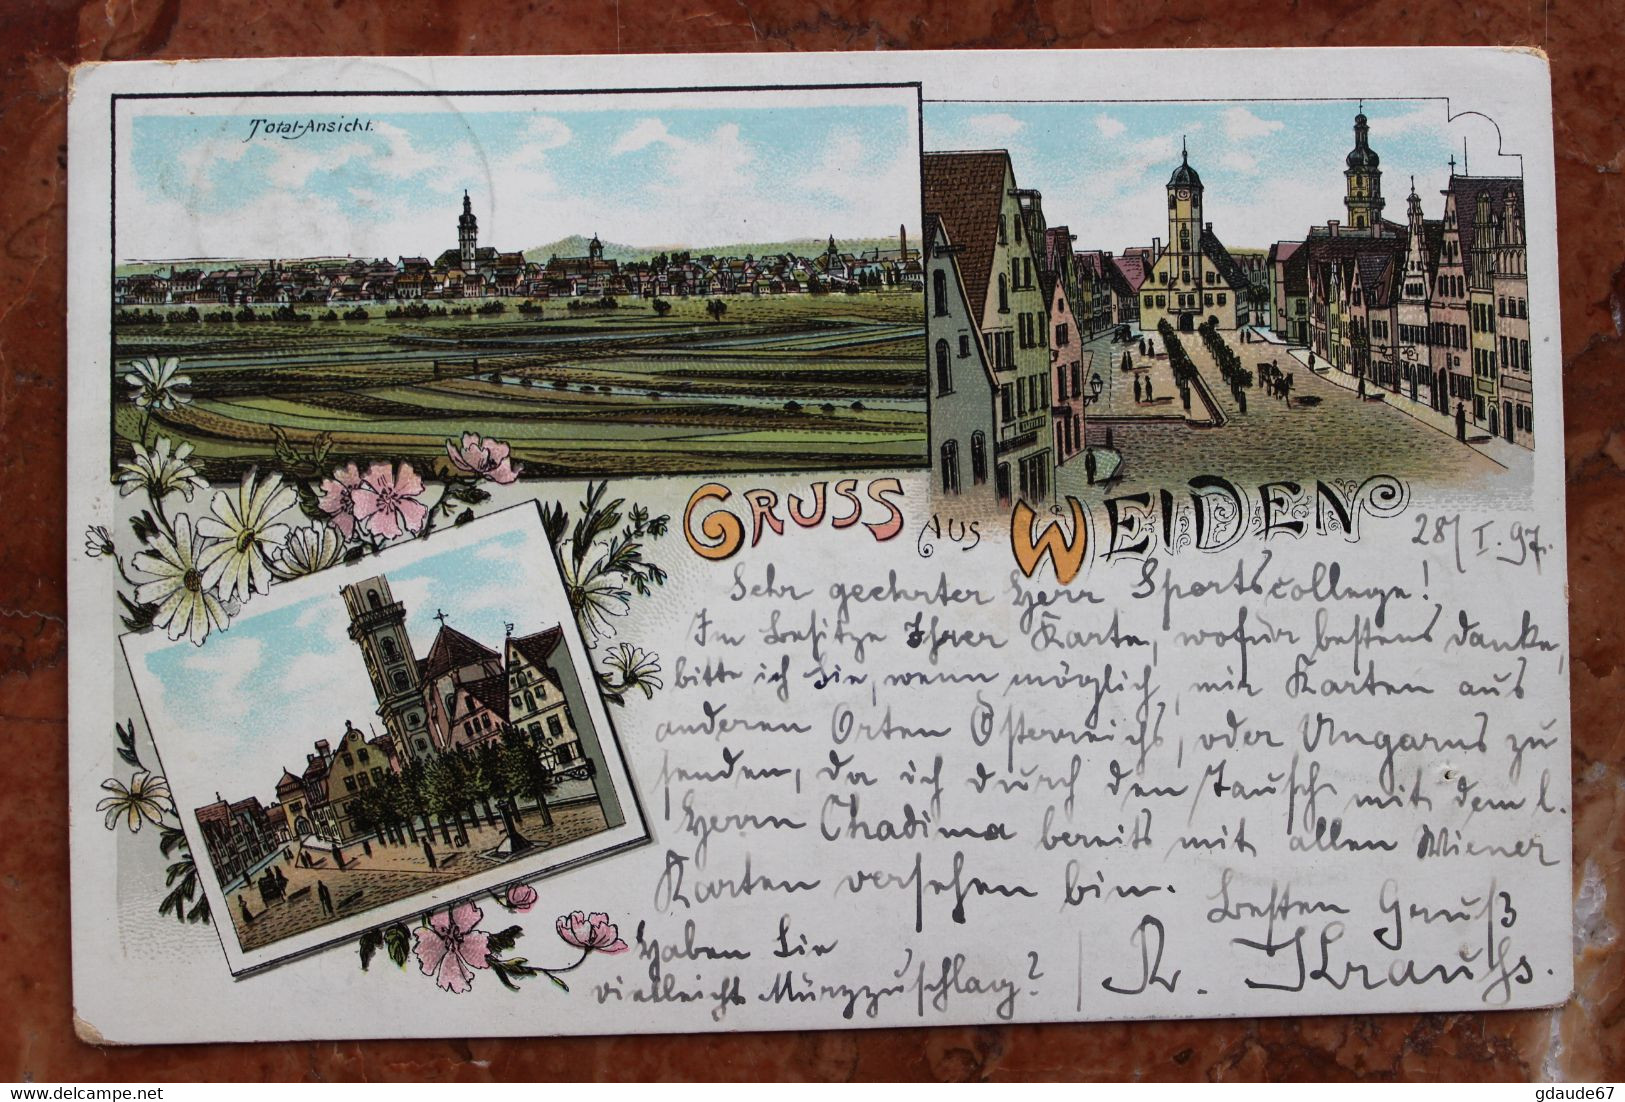 Total-Ansicht.
GRUSS AUS WEIDEN
28/I. 97.
Sehr geehrter Herr Sportscollege!
Im Besitze Ihrer Karte, wofür bestens danke,
bitte ich Sie, wenn möglich, mir Karten aus
anderen Orten Österreichs, oder Ungarns zu
senden, da ich durch den Tausch mit dem l.
Herrn Chadima bereits mit allen Wiener
Karten versehen bin.
Besten Gruß
Haben Sie
vielleicht Mürzzuschlag?
R. Krauss.
gdaude67